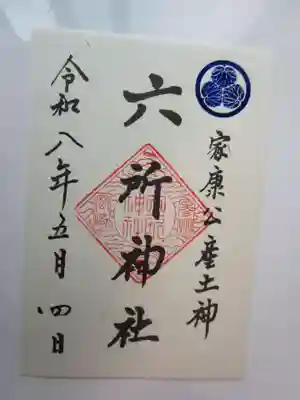 家康公産土神
六所神社
令和八年五月四日